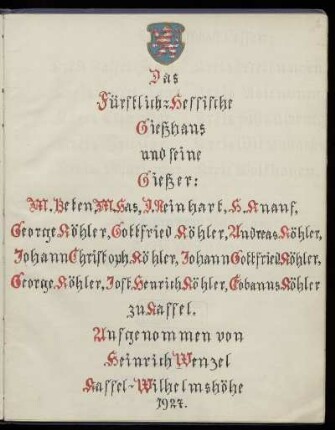 Das
Fürstlich-Hessische
Gießhaus
und seine
Gießer:
M. Peken, M. Has, J. Reinhart, H. Knauf,
George Köhler, Gottfried Köhler, Andreas Köhler,
Johann Christoph Köhler, Johann Gottfried Köhler,
George Köhler, Jost Henrich Köhler, Eobanus Köhler
zu Kassel.
Aufgenommen von
Heinrich Wenzel
Kassel-Wilhelmshöhe
1927.